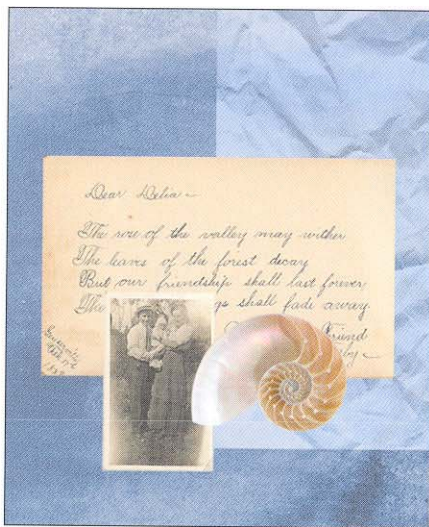 Dear Delia
The rose of the valley may wither
The leaves of the forest decay
But our friendship shall last forever
shall fade away
Friend